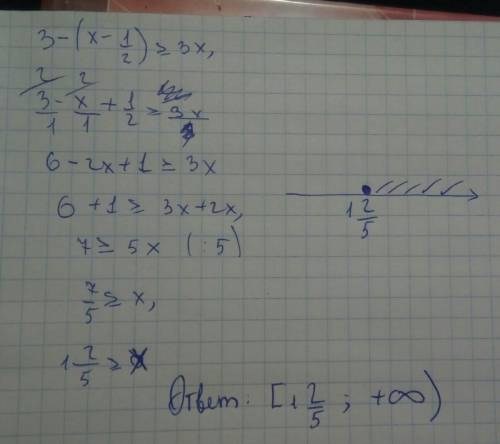 3-(x-1/2) ≥ 3x,
2 2
3/1 - x/1 + 1/2 ≥ 3x
6-2x+1 ≥ 3x
6 +1 ≥ 3x+2x,
7 ≥ 5x (:5)
7/5 ≥ x,
1 2/5 ≥ x
1 2/5
Ответ. [1 2/5 ; +∞)